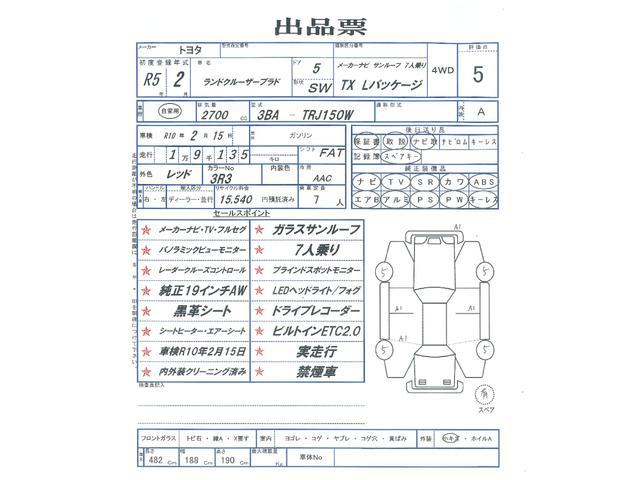 出品票
メーカー トヨタ 型式指定番号 類別区分番号 評価点
初度登録年式 車名 ドア 5 メーカーナビ サンルーフ 7人乗り 4WD 5
R5年 2月 ランドクルーザープラド 形状 SW TX Lパッケージ
車歴 自家用 排気量 2700 cc 型式 3BA － TRJ150W 通称型式 内装 A
車検 R10年 2月 15日 ガソリン 後日送り品
保証書 取説 ナビ取 ナビロム キーレス
走行 1万9千135 キロ シフト FAT 記録簿 スペアキー
外色 レッド カラーNo 3R3 内装色 冷房 AAC 純正装備品
ナビ TV SR カワ ABS
ハンドル 右・左 輸入区分 ディーラー・並行 リサイクル料金 15,540 円預託済み 乗車定員 7人
エアB アルミ PS PW キーレス
セールスポイント
★ メーカーナビ・TV・フルセグ ★ ガラスサンルーフ
★ パノラミックビューモニター ★ 7人乗り
★ レーダークルーズコントロール ★ ブラインドスポットモニター
★ 純正19インチAW ★ LEDヘッドライト/フォグ
★ 黒革シート ★ ドライブレコーダー
★ シートヒーター・エアーシート ★ ビルトインETC2.0
★ 車検R10年2月15日 ★ 実走行
★ 内外装クリーニング済み ★ 禁煙車
A1
5 5
A1 A1
5 5
A1
有
スペア
検査員記入
フロントガラス トビ石・線A・X要す 室内 ヨゴレ・コゲ・ヤブレ・コゲ穴・黄ばみ 外装 小キズ・ホイルA
長さ 482 Cm 幅 188 Cm 高さ 190 Cm 最大積載量 Kg 車体No